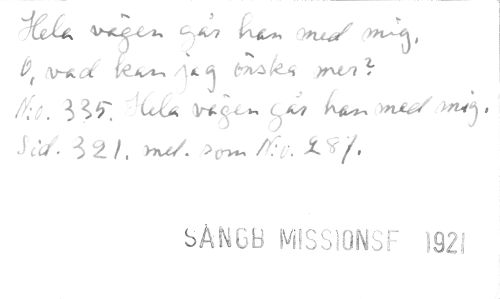 Hela vägen går han med mig,
O, vad kan jag önska mer?
N:o. 335. Hela vägen går han med mig.
Sid. 321. mel. som N:o. 287.
SÅNGB MISSIONSF 1921